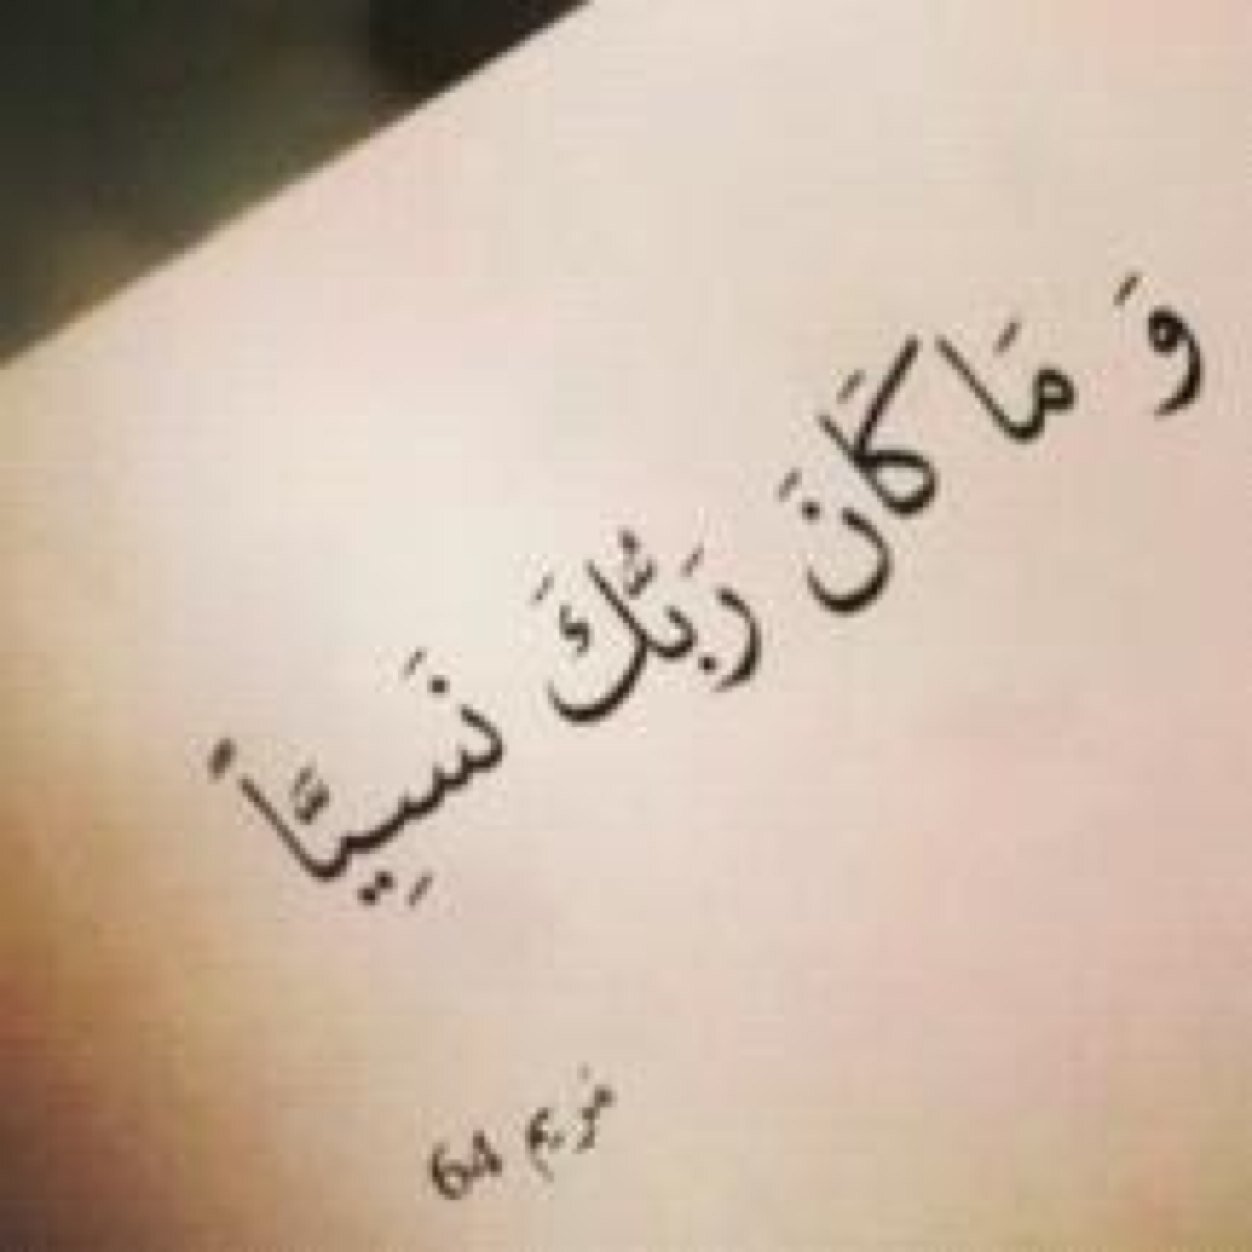 وَ مَا كَانَ رَبُّكَ نَسِيَّاً
مریم 64